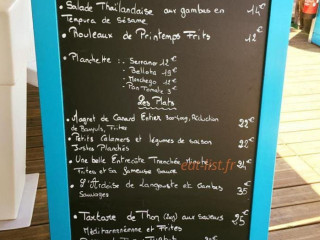 • Salade Thaïlandaise aux gambas en 14€
Tempura de Sésame
• Rouleaux de Printemps Frits 12€
• Planchette : - Serrano 12€
- Bellota 19€
- Manchego 11€
- Pan Tomate 3€
Les Plats
• Magret de Canard Entier Sarlung, Réduction 22€
de Banyuls, Frites
• Petits Calamars et légumes de saison 22€
Justes Planchés
• Une belle Entrecôte Tranchée Minute 24€
Frites et Sa fameuse sauce
• L'Ardoise de Langouste et Gambas 35€
Sauvages
• Tartare de Thon aux saveurs 25€
Méditerranéenne et Frites
eat-list.fr